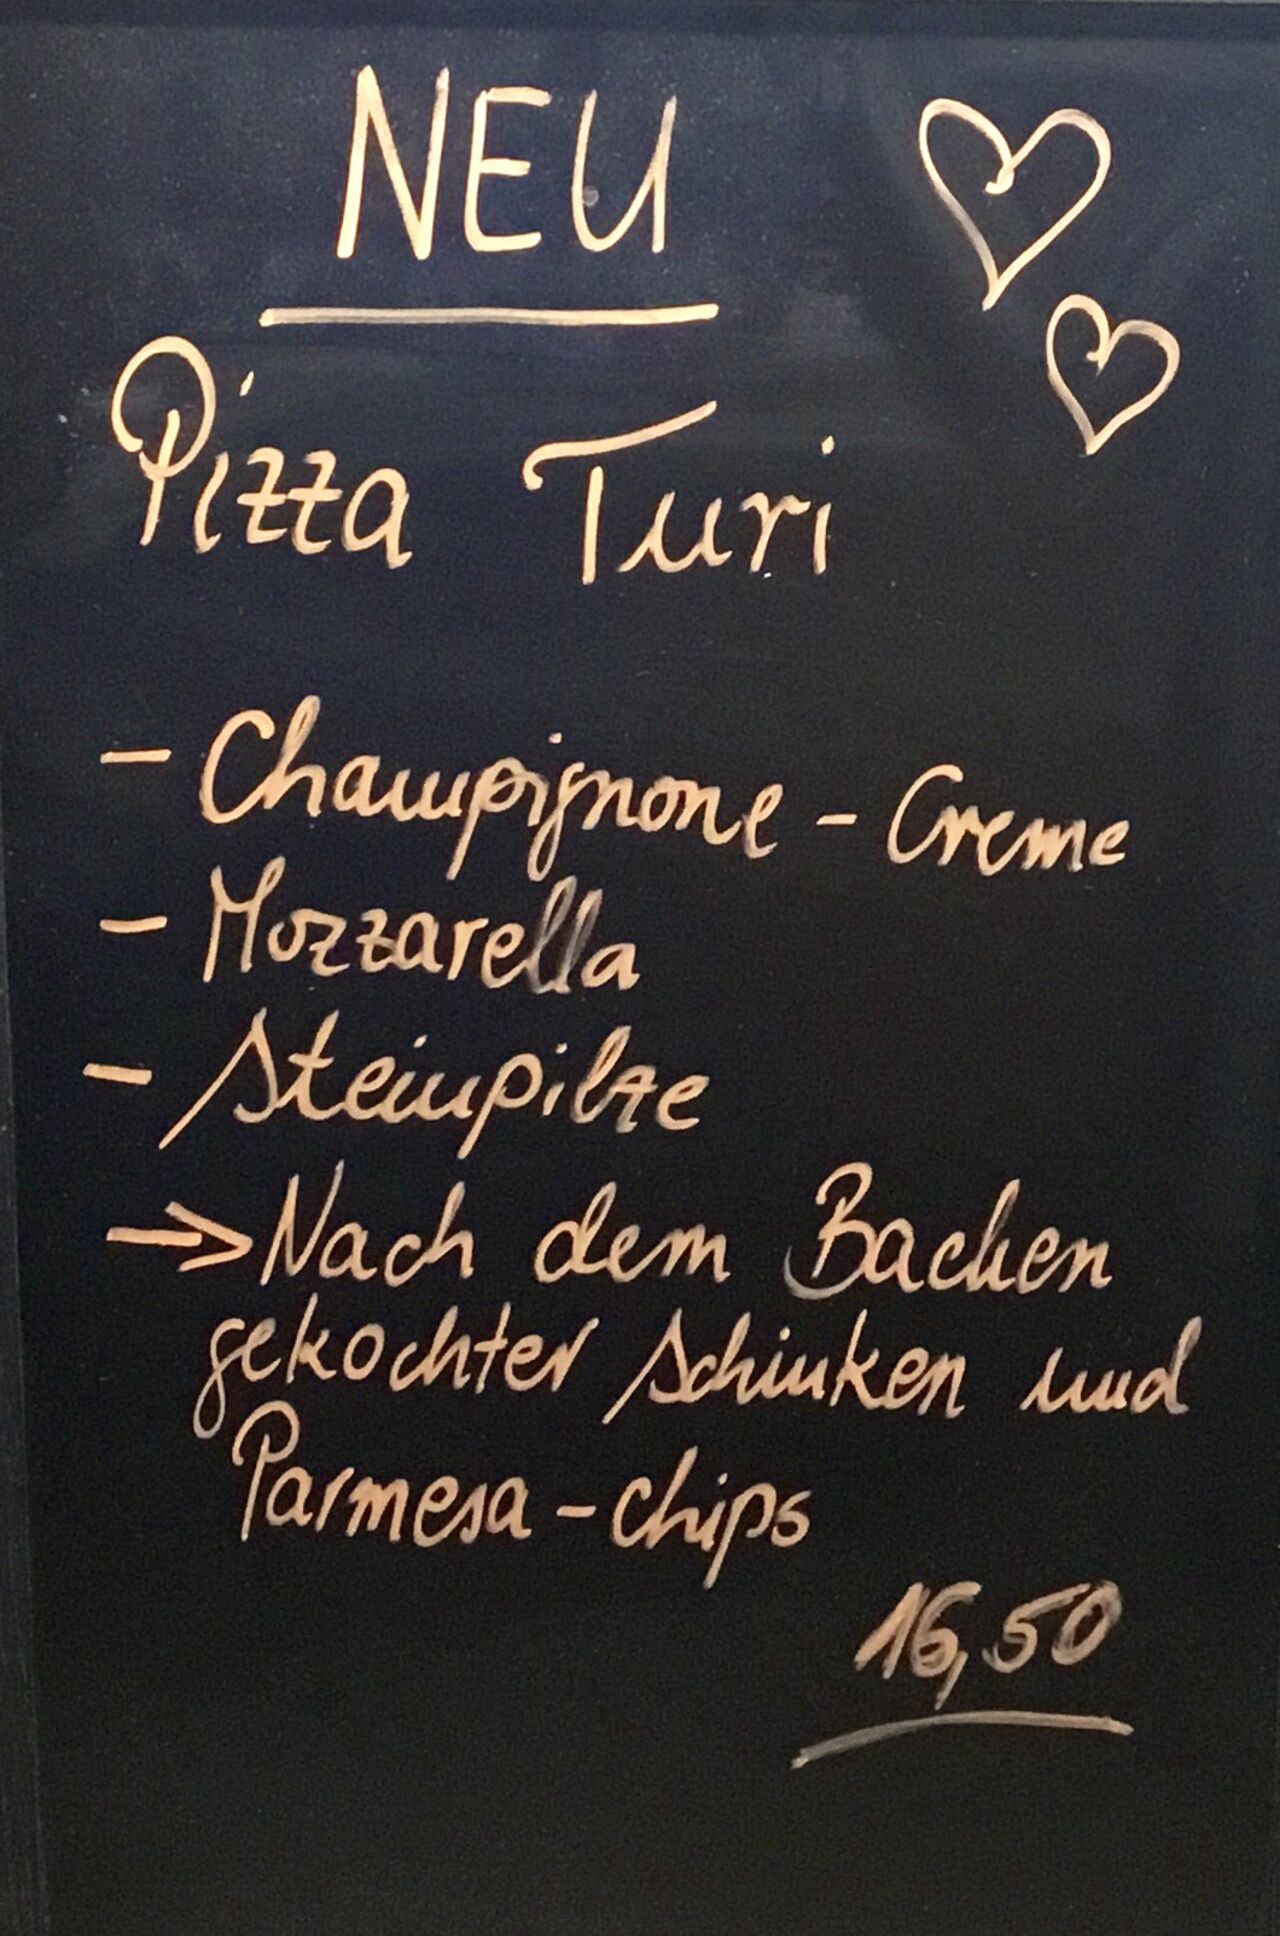 NEU
Pizza Turi
- Champignone - Creme
- Mozzarella
- Steinpilze
→ Nach dem Backen
gekochter Schinken und
Parmesa - chips
16,50